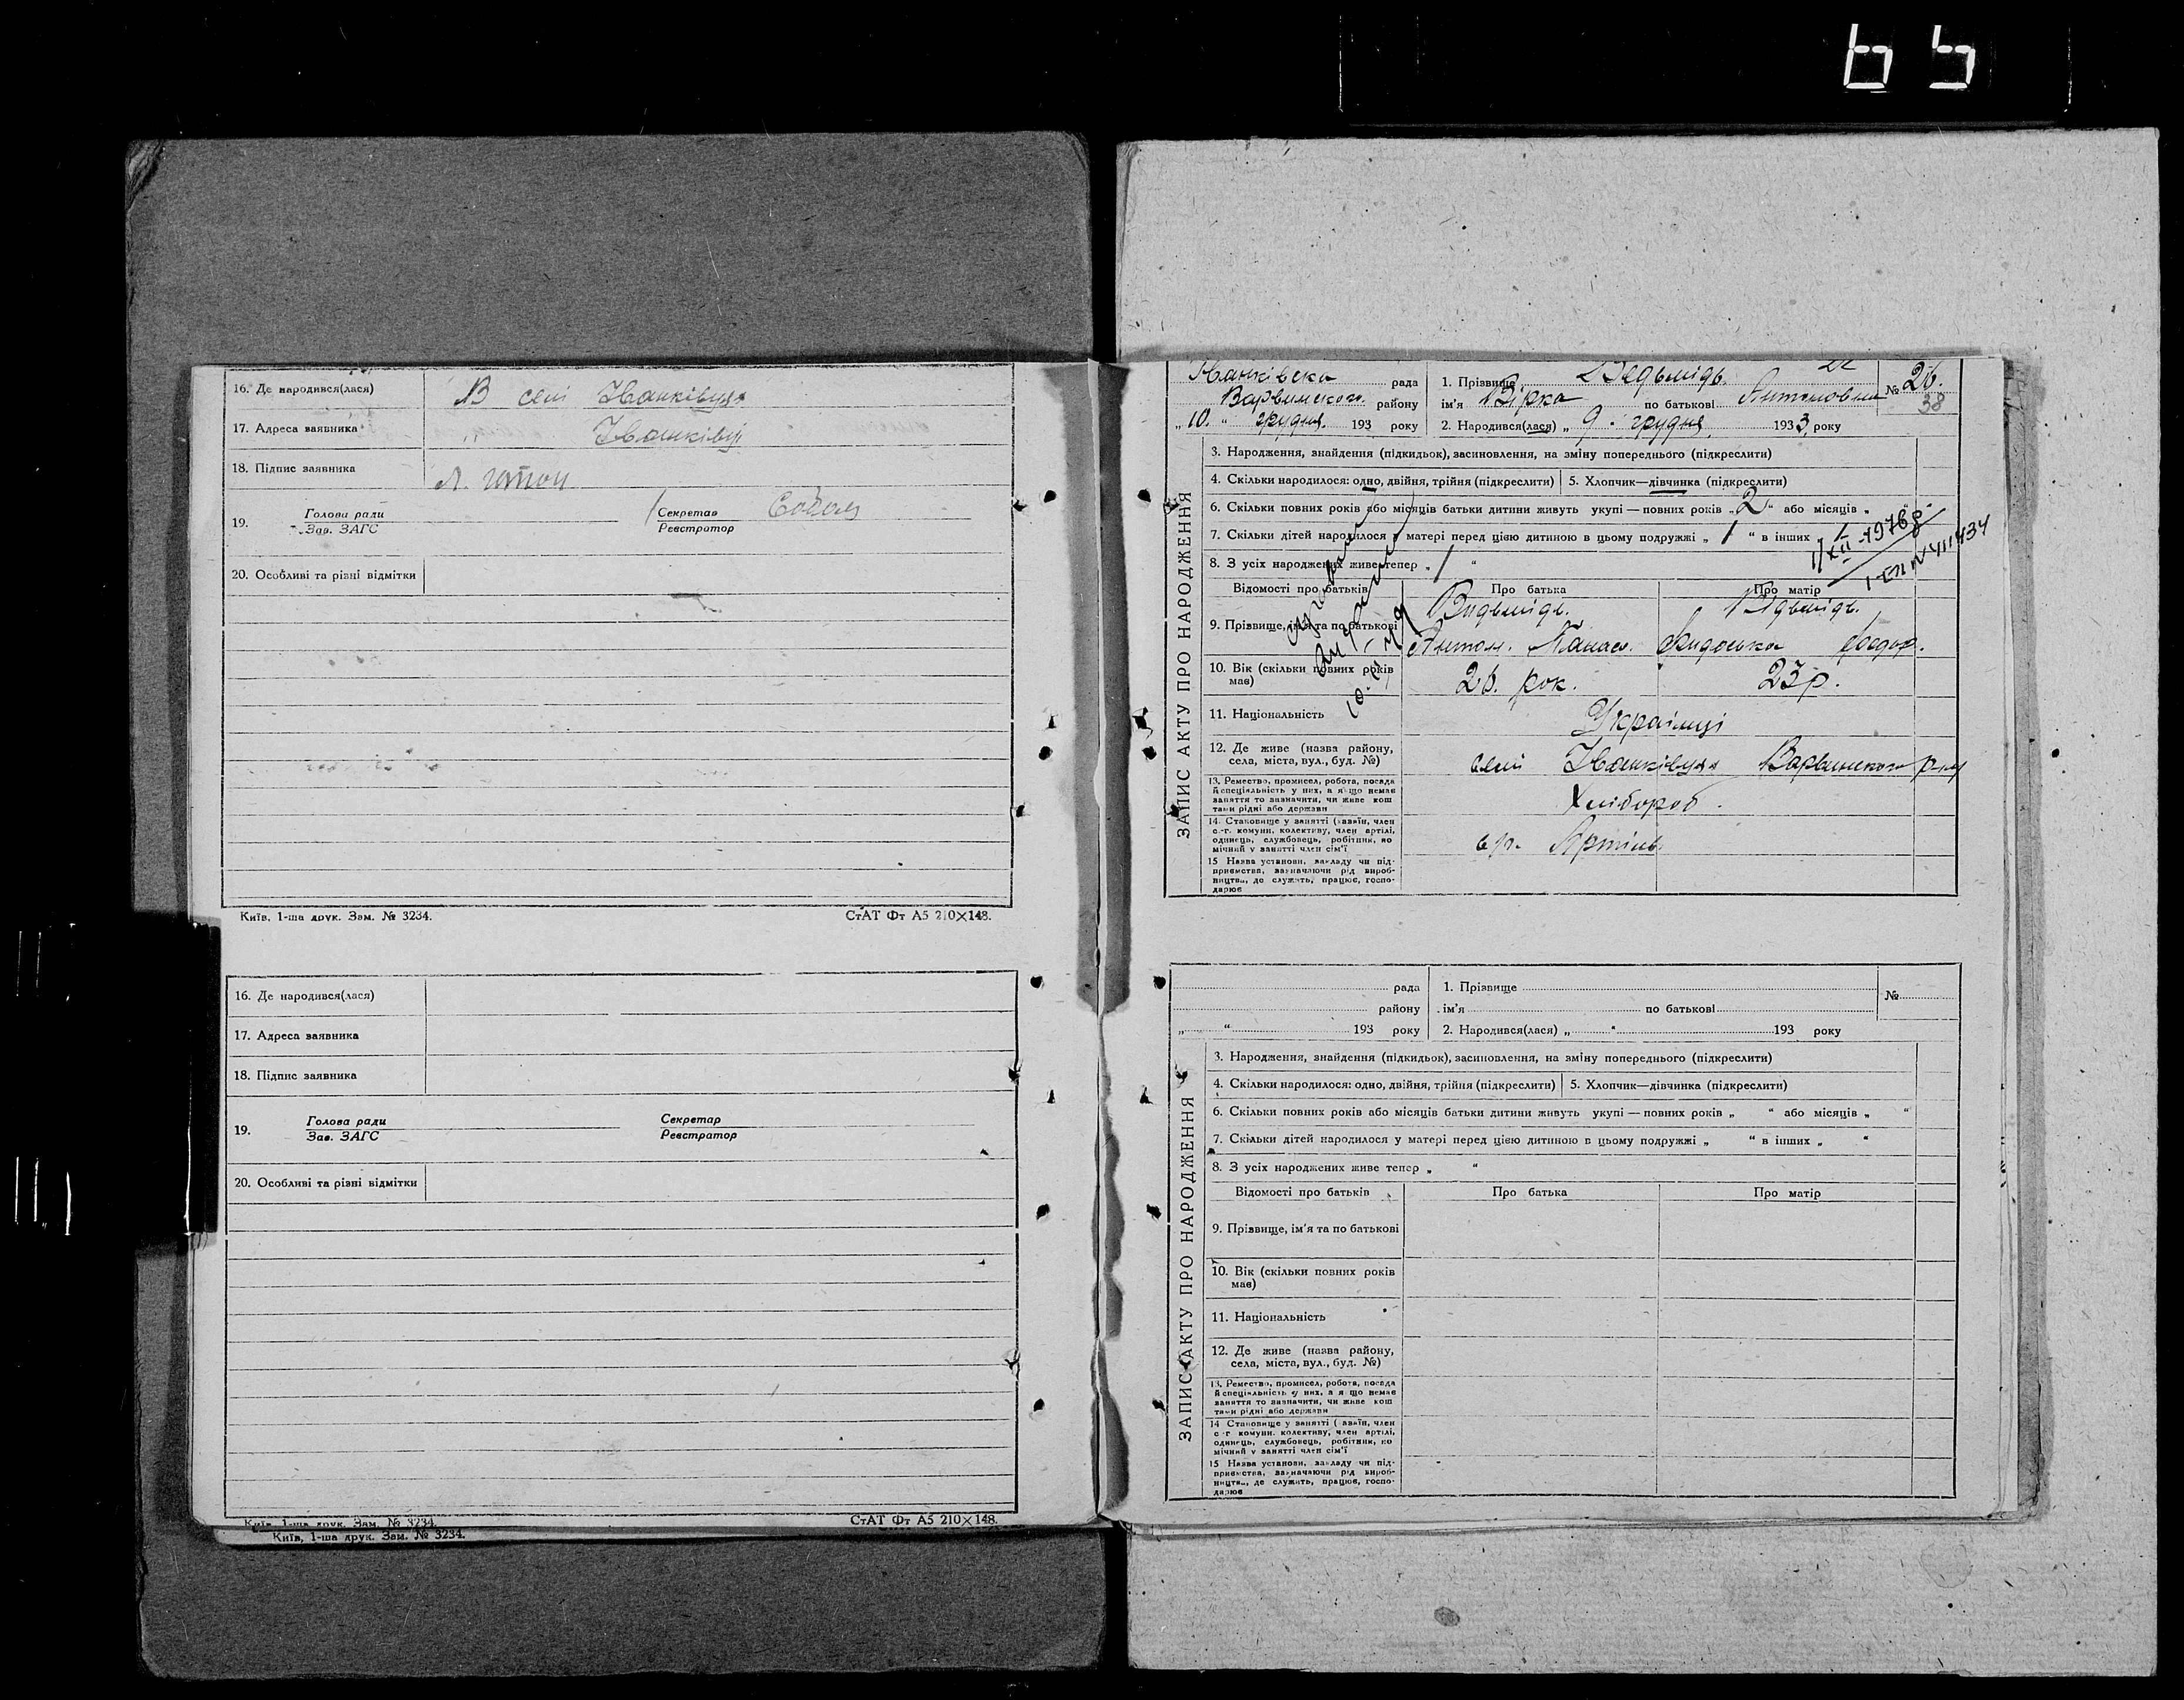 16. Де народився(лася) В селі Іванківцях
17. Адреса заявника " Іванківці
18. Підпис заявника
19. Голова ради Секретар
Зав. ЗАГС Реєстратор
20. Особливі та різні відмітки
Київ, 1-ша друк. Зам. № 3234. СтАТ Фт А5 210×148.
16. Де народився(лася)
17. Адреса заявника
18. Підпис заявника
19. Голова ради Секретар
Зав. ЗАГС Реєстратор
20. Особливі та різні відмітки
Київ, 1-ша друк. Зам. № 3234. СтАТ Фт А5 210×148.
Київ, 1-ша друк. Зам. № 3234.
Іванківська рада 1. Прізвище Ведьмідь № 26.
Варвинського району ім'я Вірка по батькові Антоновна 38
„10.“ грудня 193 року 2. Народився(лася) „9.“ грудня 1933 року
ЗАПИС АКТУ ПРО НАРОДЖЕННЯ
3. Народження, знайдення (підкидьок), засиновлення, на зміну попереднього (підкреслити)
4. Скільки народилося: одно, двійня, трійня (підкреслити) 5. Хлопчик—дівчинка (підкреслити)
6. Скільки повних років або місяців батьки дитини живуть укупі — повних років „2“ або місяців „
7. Скільки дітей народилося у матері перед цією дитиною в цьому подружжі „1“ в інших „
8. З усіх народжених живе тепер „1“
Відомості про батьків Про батька Про матір
9. Прізвище, ім'я та по батькові Видьмідь. Відьмідь.
Антон. Панас. Федор.
10. Вік (скільки повних років має) 26. рок. 23 р.
11. Національність Українці
12. Де живе (назва району, села, міста, вул., буд. №) селі Іванківцях Варвинского р-ну
13. Ремество, промисел, робота, посада й спеціяльність у них, а якщо немає заняття то зазначити, чи живе коштами рідні або держави Хлібороб.
14. Становище у занятті (хазяїн, член с.-г. комуни, колективу, член артілі, одинець, службовець, робітник, помічний у занятті член сім'ї с/г. Артіль.
15 Назва установи, закладу чи підприємства, зазначаючи рід виробництва, де служить, працює, господарює
рада 1. Прізвище №
району ім'я по батькові
„ “ 193 року 2. Народився(лася) „ “ 193 року
ЗАПИС АКТУ ПРО НАРОДЖЕННЯ
3. Народження, знайдення (підкидьок), засиновлення, на зміну попереднього (підкреслити)
4. Скільки народилося: одно, двійня, трійня (підкреслити) 5. Хлопчик—дівчинка (підкреслити)
6. Скільки повних років або місяців батьки дитини живуть укупі — повних років „ “ або місяців „ “
7. Скільки дітей народилося у матері перед цією дитиною в цьому подружжі „ “ в інших „ “
8. З усіх народжених живе тепер „ “
Відомості про батьків Про батька Про матір
9. Прізвище, ім'я та по батькові
10. Вік (скільки повних років має)
11. Національність
12. Де живе (назва району, села, міста, вул., буд. №)
13. Ремество, промисел, робота, посада й спеціяльність у них, а якщо немає заняття то зазначити, чи живе коштами рідні або держави
14 Становище у занятті (хазяїн, член с.-г. комуни, колективу, член артілі, одинець, службовець, робітник, помічний у занятті член сім'ї
15 Назва установи, закладу чи підприємства, зазначаючи рід виробництва, де служить, працює, господарює